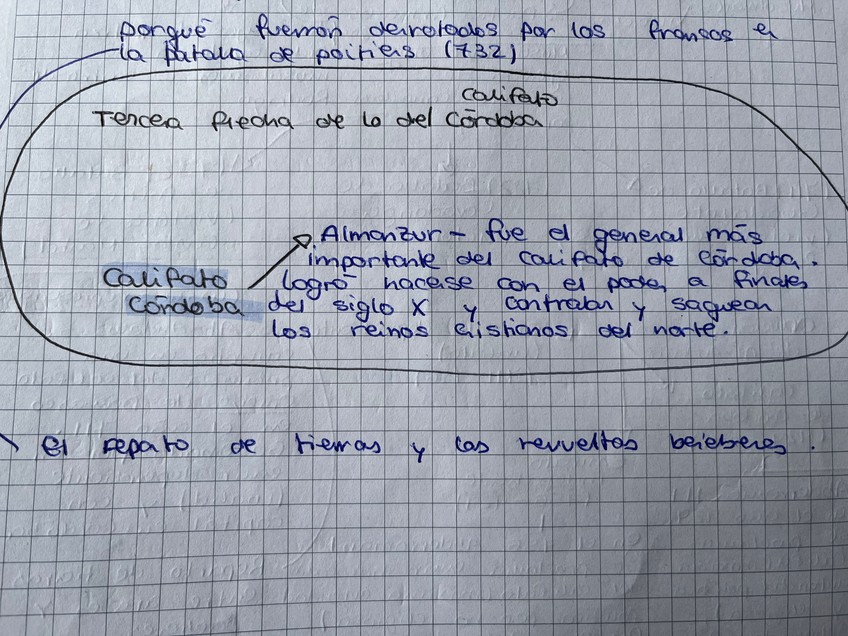 porqué fuerron derrotados por los fransos en
la batalla de poitiers (732)
califato
Tercera flecha de lo del Córdoba
Almanzur - fue el general más
importante del califato de Córdoba.
Califato logró hacerse con el poder a finales
Córdoba del siglo X y controlan y saquean
los reinos cristianos del norte.
el reparto de tierras y las revueltas bereberes.